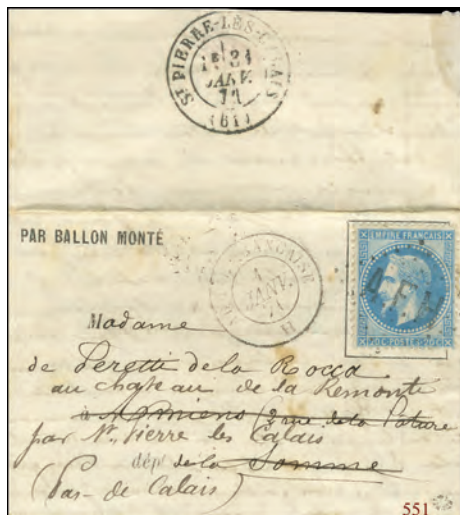 ST PIERRE-LÈS-CALAIS
JANV.
71
(61)
PAR BALLON MONTÉ
ARMÉE FRANÇAISE
1
JANV.
71
H
EMPIRE FRANÇAIS
20 C POSTES 20 C
AFH
Madame
de Peretti de la Rocca
au château de la Remonte
à Amiens (2 rue de la Pature
par St. Pierre les Calais
dépt de la Somme
(Pas-de Calais)
551